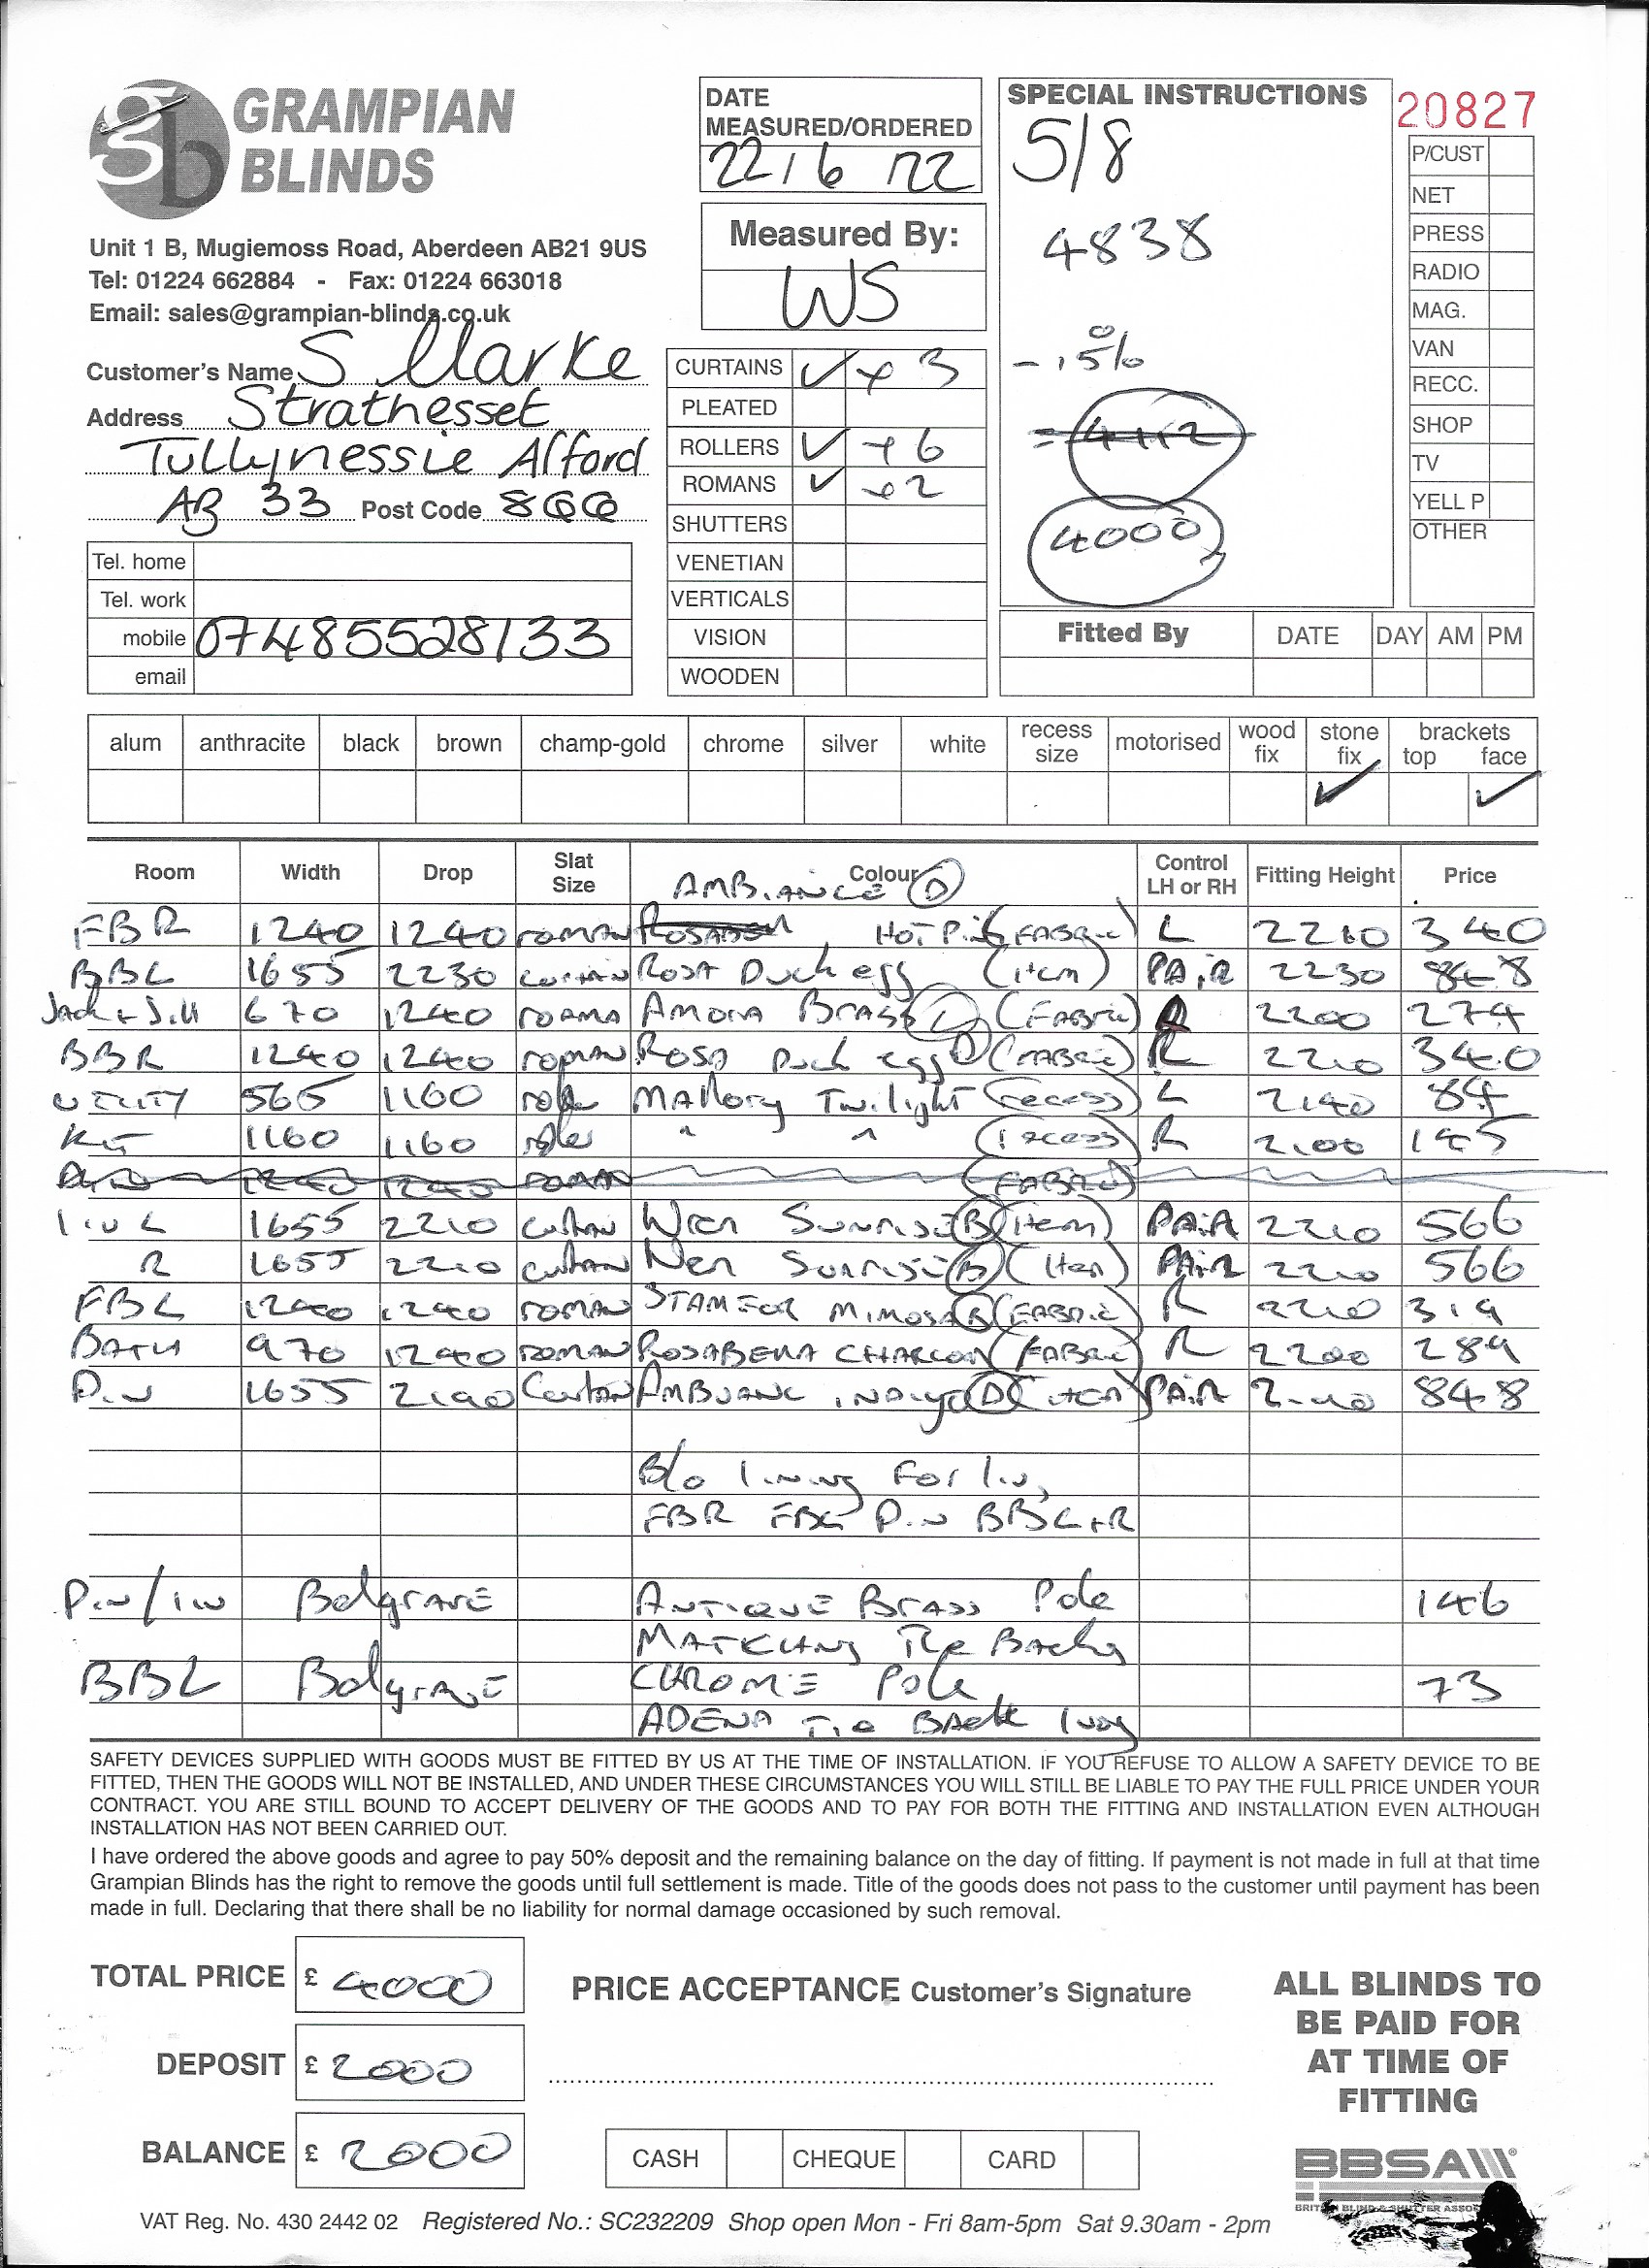 GRAMPIAN
BLINDS
Unit 1 B, Mugiemoss Road, Aberdeen AB21 9US
Tel: 01224 662884 - Fax: 01224 663018
Email: sales@grampian-blinds.co.uk
DATE
MEASURED/ORDERED
22/6 22
Measured By:
WS
SPECIAL INSTRUCTIONS
5/8
4838
-15%
= 4112
4000
20827
P/CUST
NET
PRESS
RADIO
MAG.
VAN
RECC.
SHOP
TV
YELL P
OTHER
Customer's Name S Clarke
Address Strathesset
Tullynessie Alford
AB 33 Post Code 8QQ
Tel. home
Tel. work
mobile 07485528133
email
CURTAINS ✓ x 3
PLEATED
ROLLERS ✓ x 6
ROMANS ✓ x 2
SHUTTERS
VENETIAN
VERTICALS
VISION
WOODEN
Fitted By DATE DAY AM PM
alum anthracite black brown champ-gold chrome silver white recess size motorised wood fix stone fix brackets top face
✓ ✓
Room Width Drop Slat Size Colour Control LH or RH Fitting Height Price
AMBIANCE D
FBR 1240 1240 ROMAN HOT Pink (FABRIC) L 2210 340
BBL 1655 2230 curtain ROSA Duck egg (item) PAIR 2230 848
Jack + Jill 670 1240 ROMA AMORA BRASS D (FABRIC) 2200 274
BBR 1240 1240 ROMAN ROSA Duck egg D (FABRIC) R 2210 340
UTILITY 565 1160 roller MALLORY Twilight (recess) L 2140 84
KIT 1160 1160 roller " " (recess) R 2100 145
LIV L 1655 2210 curtain Wren SUNRISE B (item) PAIR 2210 566
R 1655 2210 curtain Wren SUNRISE B (item) PAIR 2210 566
FBL 1240 1240 ROMAN STAMFOR MIMOSA B (FABRIC) R 2210 319
BATH 970 1240 ROMAN ROSABENA CHARCOAL (FABRIC) R 2200 289
DIN 1655 2190 Curtain AMBIANC INDIGO D (item) PAIR 848
B/o lining For liv,
FBR FBL DIN BBL+R
Din/liv Belgrave ANTIQUE BRASS Pole 146
MATCHING Tie Backs
BBL Belgrave CHROME Pole 73
ADENA Tie BACK Ivory
SAFETY DEVICES SUPPLIED WITH GOODS MUST BE FITTED BY US AT THE TIME OF INSTALLATION. IF YOU REFUSE TO ALLOW A SAFETY DEVICE TO BE
FITTED, THEN THE GOODS WILL NOT BE INSTALLED, AND UNDER THESE CIRCUMSTANCES YOU WILL STILL BE LIABLE TO PAY THE FULL PRICE UNDER YOUR
CONTRACT. YOU ARE STILL BOUND TO ACCEPT DELIVERY OF THE GOODS AND TO PAY FOR BOTH THE FITTING AND INSTALLATION EVEN ALTHOUGH
INSTALLATION HAS NOT BEEN CARRIED OUT.
I have ordered the above goods and agree to pay 50% deposit and the remaining balance on the day of fitting. If payment is not made in full at that time
Grampian Blinds has the right to remove the goods until full settlement is made. Title of the goods does not pass to the customer until payment has been
made in full. Declaring that there shall be no liability for normal damage occasioned by such removal.
TOTAL PRICE £ 4000
DEPOSIT £ 2000
BALANCE £ 2000
PRICE ACCEPTANCE Customer's Signature
CASH CHEQUE CARD
ALL BLINDS TO
BE PAID FOR
AT TIME OF
FITTING
BBSA
VAT Reg. No. 430 2442 02 Registered No.: SC232209 Shop open Mon - Fri 8am-5pm Sat 9.30am - 2pm